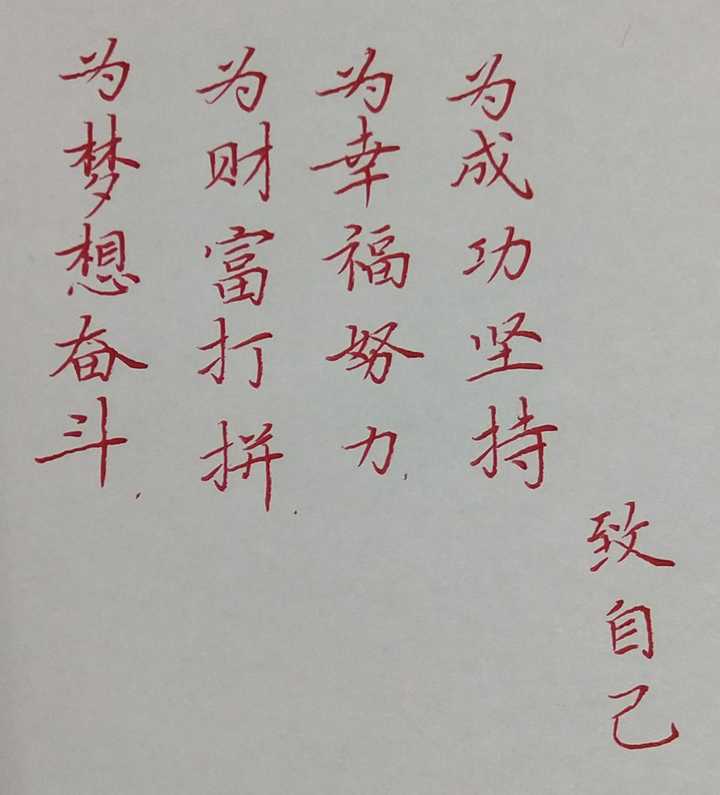 为梦想奋斗.
为财富打拼.
为幸福努力.
为成功坚持
致自己